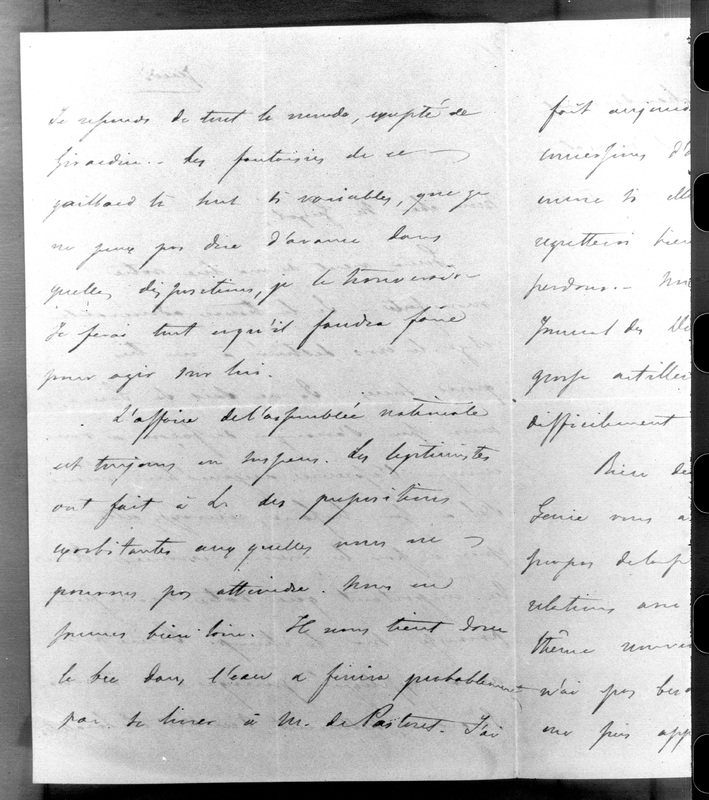 Je réponds de tout le monde, excepté de
Girardin. Les fantaisies de ce
gaillard là sont si variables, que je
ne peux pas dire d'avance dans
quelles dispositions, je le trouverai.
Je ferai tout ce qu'il faudra faire
pour agir sur lui.
L'affaire de l'assemblée nationale
est toujours en suspens. Les légitimistes
ont fait à L. des propositions
exorbitantes auxquelles nous ne
pouvons pas atteindre. Nous en
sommes bien loin. Il nous tient donc
le bec dans l'eau & finira probablement
par se livrer à M. de Pastoret. J'ai
fait
concessions d'
encore si elle
regretterai bien
perdons.
Journal des
grosse
difficilement
Bien
Genie vous a
propos de la
relations
thème
n'ai pas
me